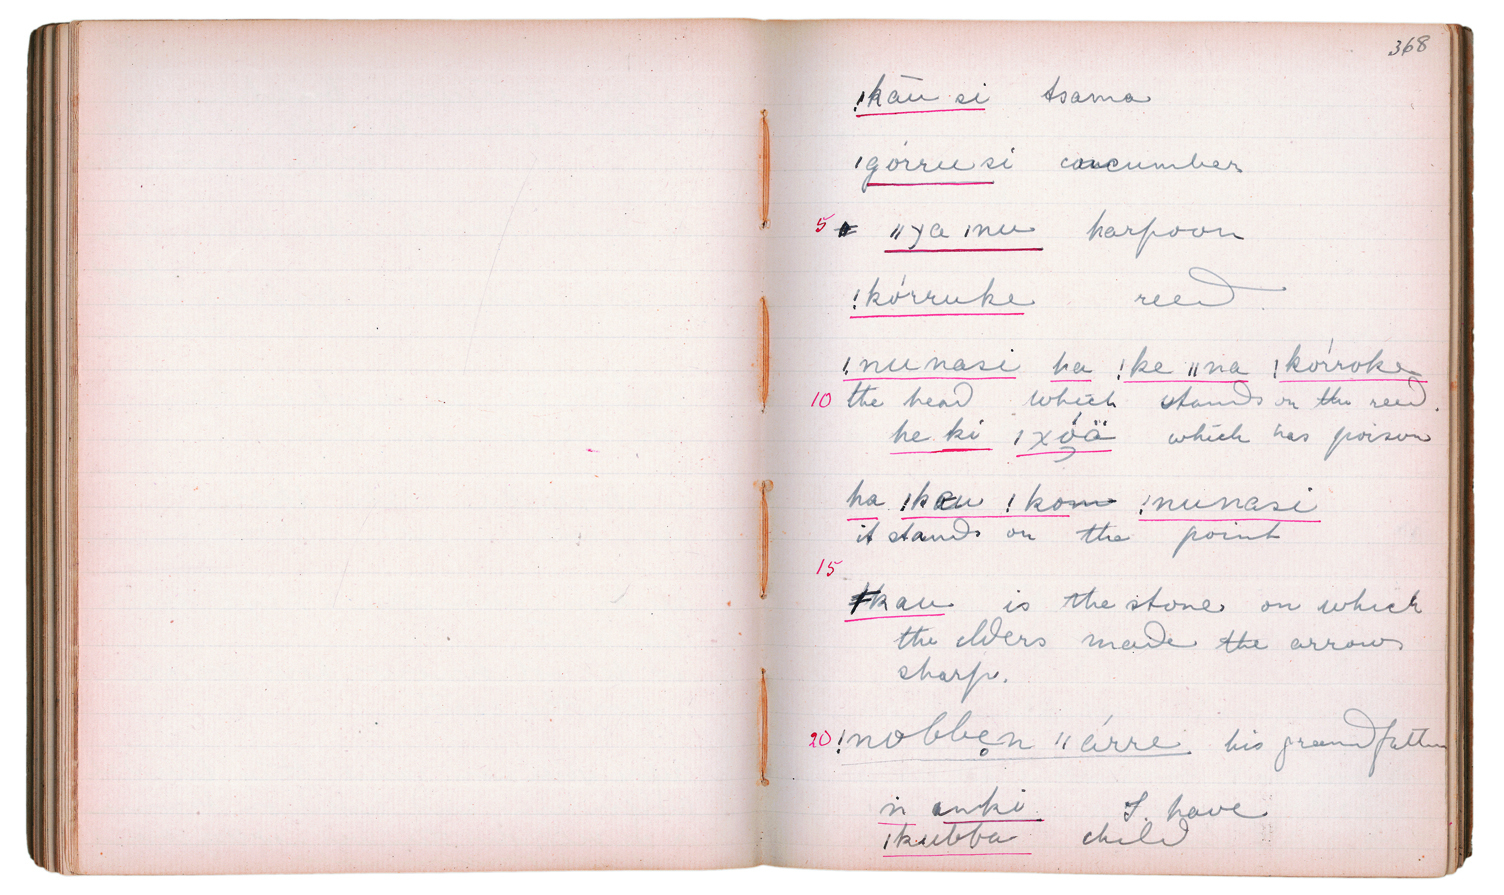 368
!kāu si tsama
ǀgórru si cucumber
5 ǁχa ǀnu harpoon
!kórruke reed
!nunasi ha !ke ǁna !kórroke
10 the head which stands on the reed.
he ki ǀχóä which has poison
ha !kau !kom !nunasi
it stands on the point
15
ǂkau is the stone on which
the elders made the arrows
sharp.
20 !nobbe̥n ǁárre his grandfather
n̄ anki I have
ǀkubba child